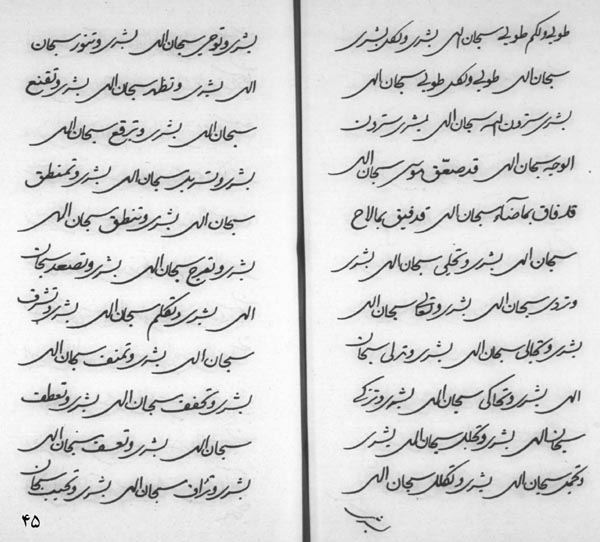 طوبی و لکم طوبی سبحان الهی بشری و لکم بشری
سبحان الهی طوبی و لکم طوبی سبحان الهی
بشری سترون الله سبحان الهی بشری سترون
الوجه سبحان الهی قد صعّق موسی سبحان الهی
قد فاق بماضاء سبحان الهی قد فیق بمالاح
سبحان الهی بشری و تجلی سبحان الهی بشری
و تردی سبحان الهی بشری و تعالی سبحان الهی
بشری و تجالی سبحان الهی بشری و تدلی سبحان
الهی بشری و تحاکی سبحان الهی بشری و تزکی
سبحان الهی بشری سبحان الهی بشری
سبحان الهی بشری و تکلل سبحان الهی
بشری
بشری و توحی سبحان الهی بشری و تنور سبحان
الهی بشری و تطهر سبحان الهی بشری و تقنع
سبحان الهی بشری و تبرقع سبحان الهی
بشری سبحان الهی بشری و تمنطق
سبحان الهی بشری و تنطق سبحان الهی
بشری و تعرج سبحان الهی بشری و تصعد سبحان
الهی بشری و تکلم سبحان الهی بشری و تشرف
سبحان الهی بشری سبحان الهی
بشری و تخفف سبحان الهی بشری و تعطف
سبحان الهی بشری سبحان الهی
بشری سبحان الهی بشری سبحان
۴۵